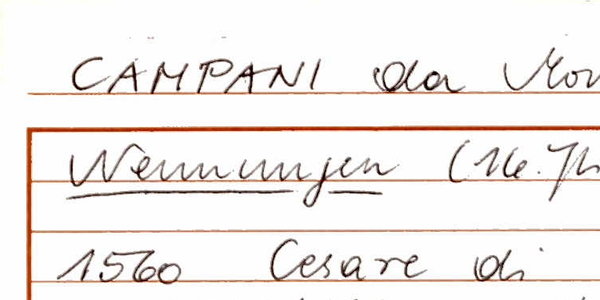 CAMPANI da
Nennungen (16. Jh
1560 Cesare di